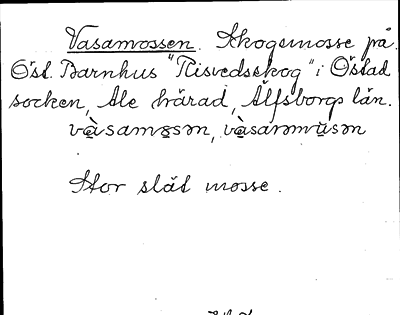 Vasamossen. Skogsmosse på
Öst. Barnhus "Risvedsskog" i Östad
socken, Ale härad, Älfsborgs län.
Stor slät mosse.